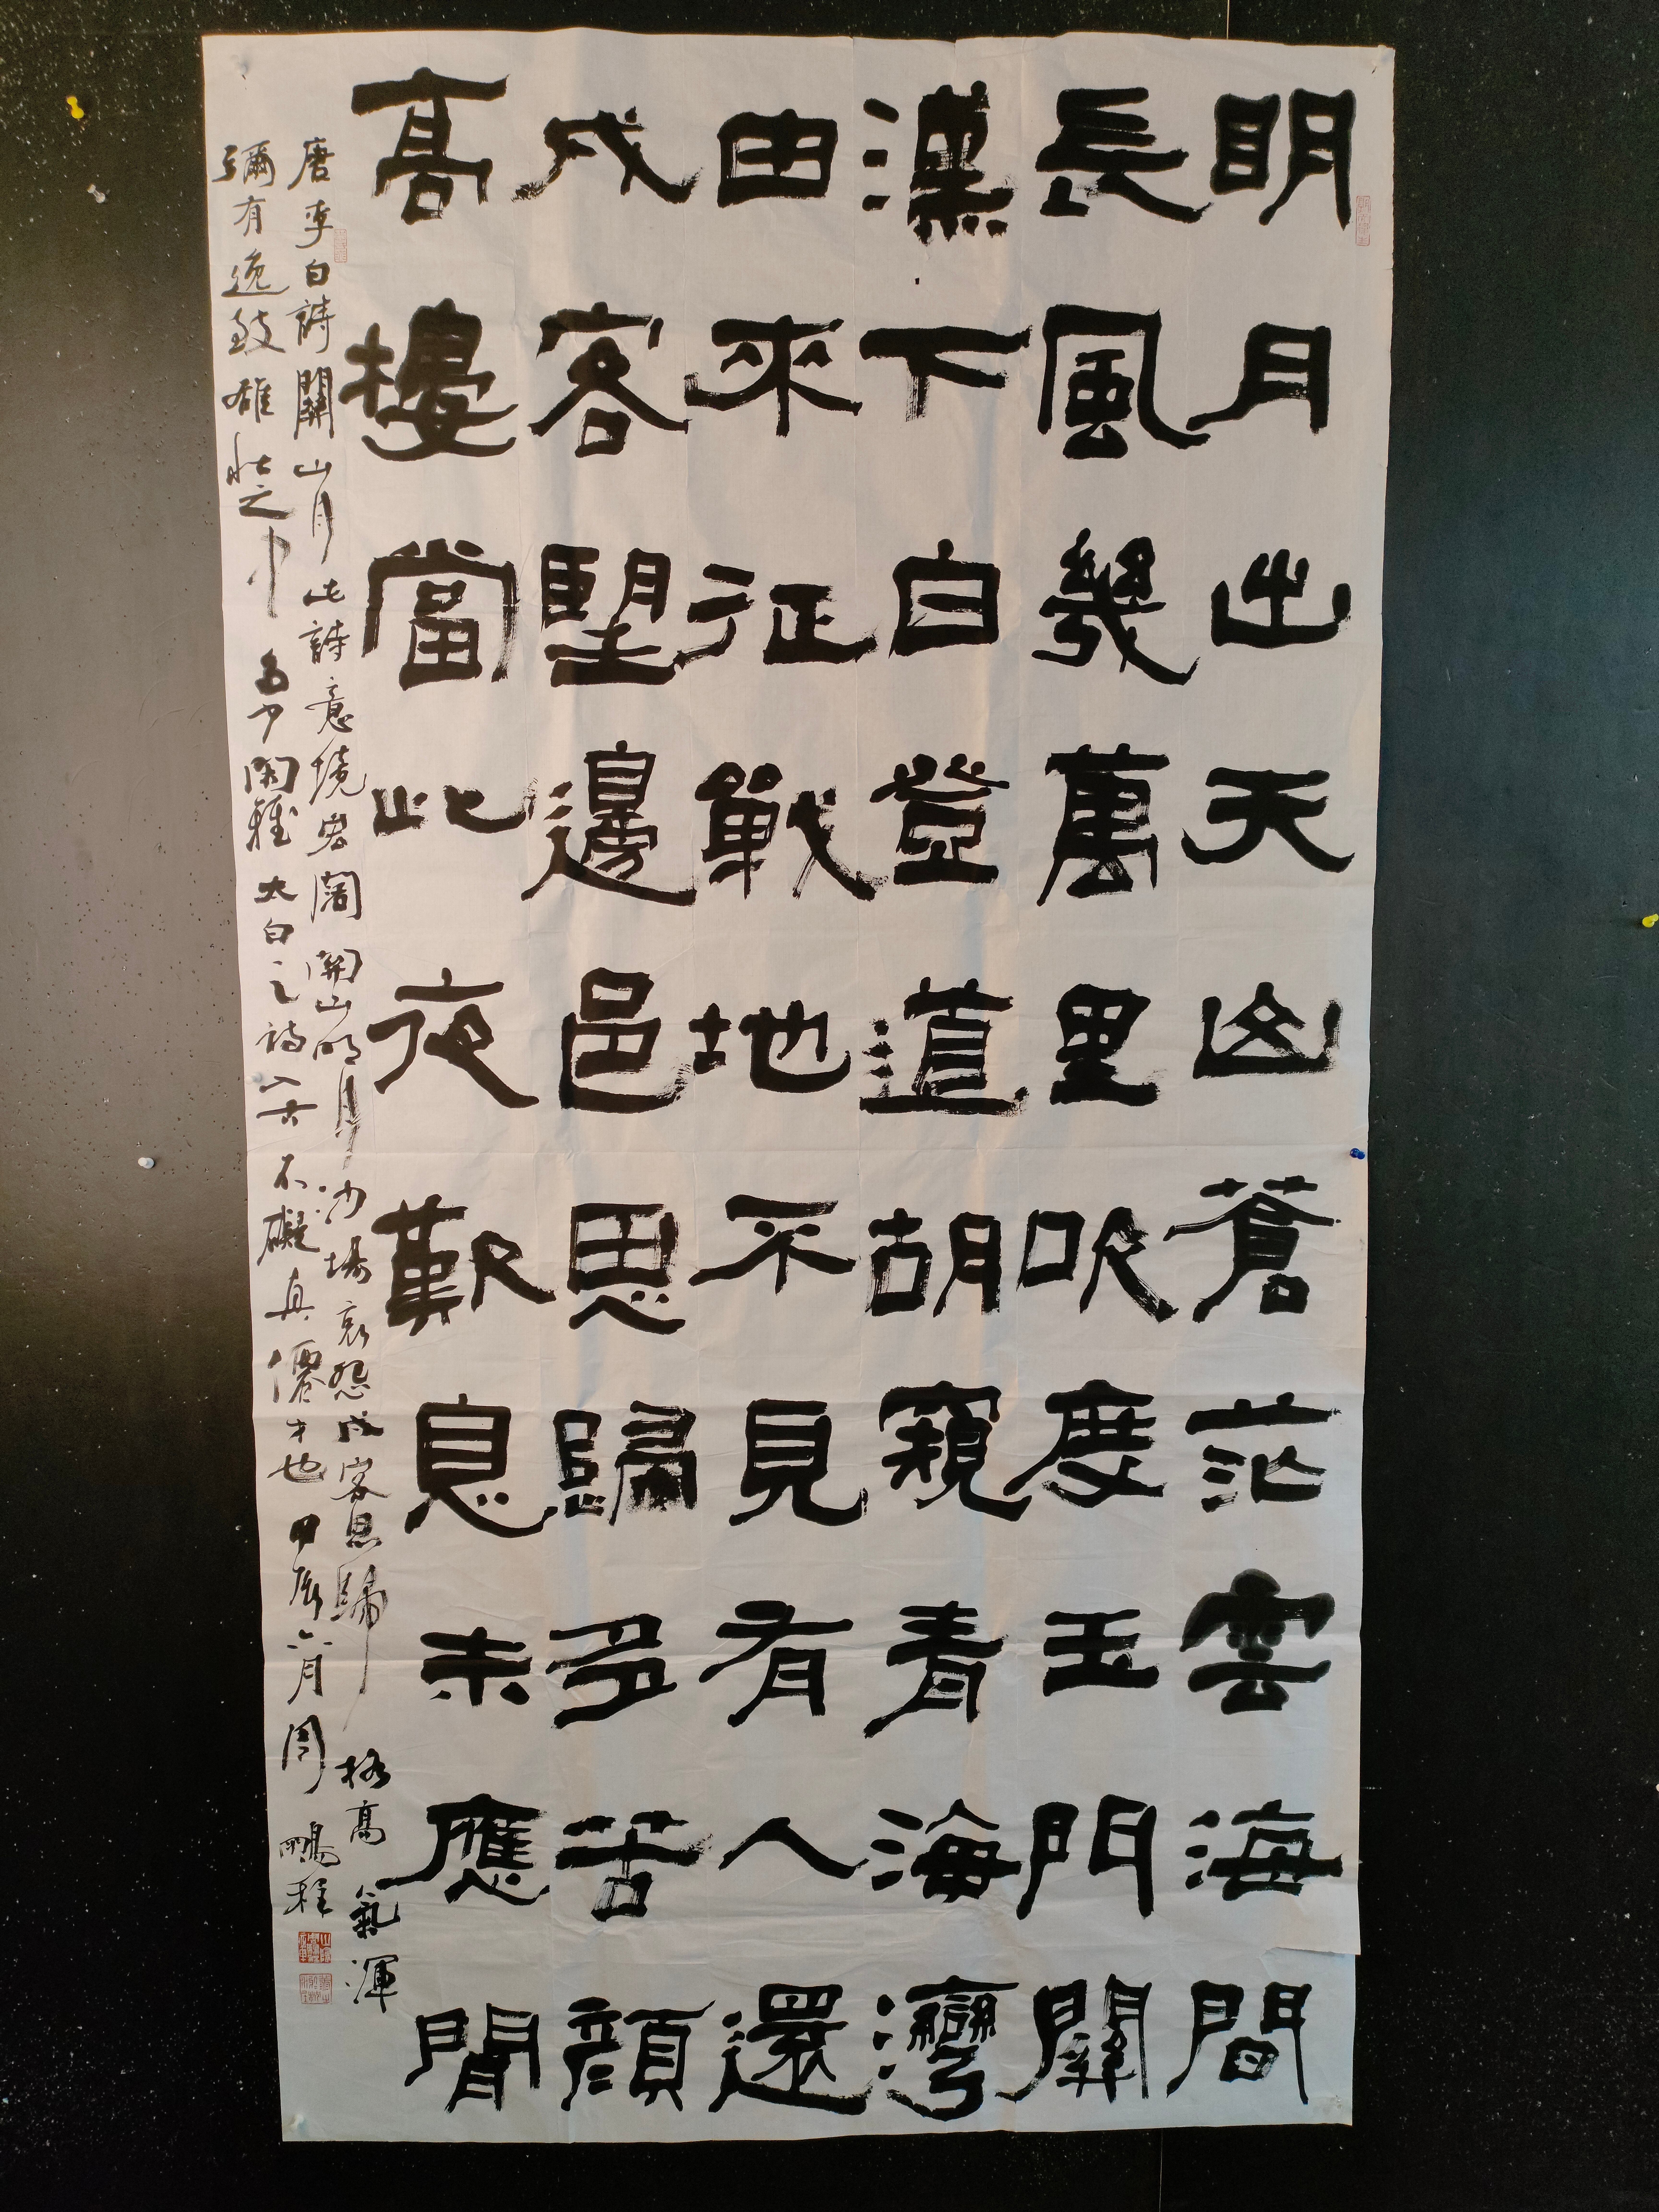 明月出天山蒼茫雲海間
長風幾萬里吹度玉門關
漢下白登道胡窺青海灣
由來征戰地不見有人還
戍客望邊邑思歸多苦顏
高樓當此夜歎息未應閒
唐李白詩關山月此詩意境宏闊關山明月沙場哀怨戍客思歸格高氣渾
彌有逸致雄壯之中多少閑雅太白之詩不礙真僊才也甲辰六月周鵬程